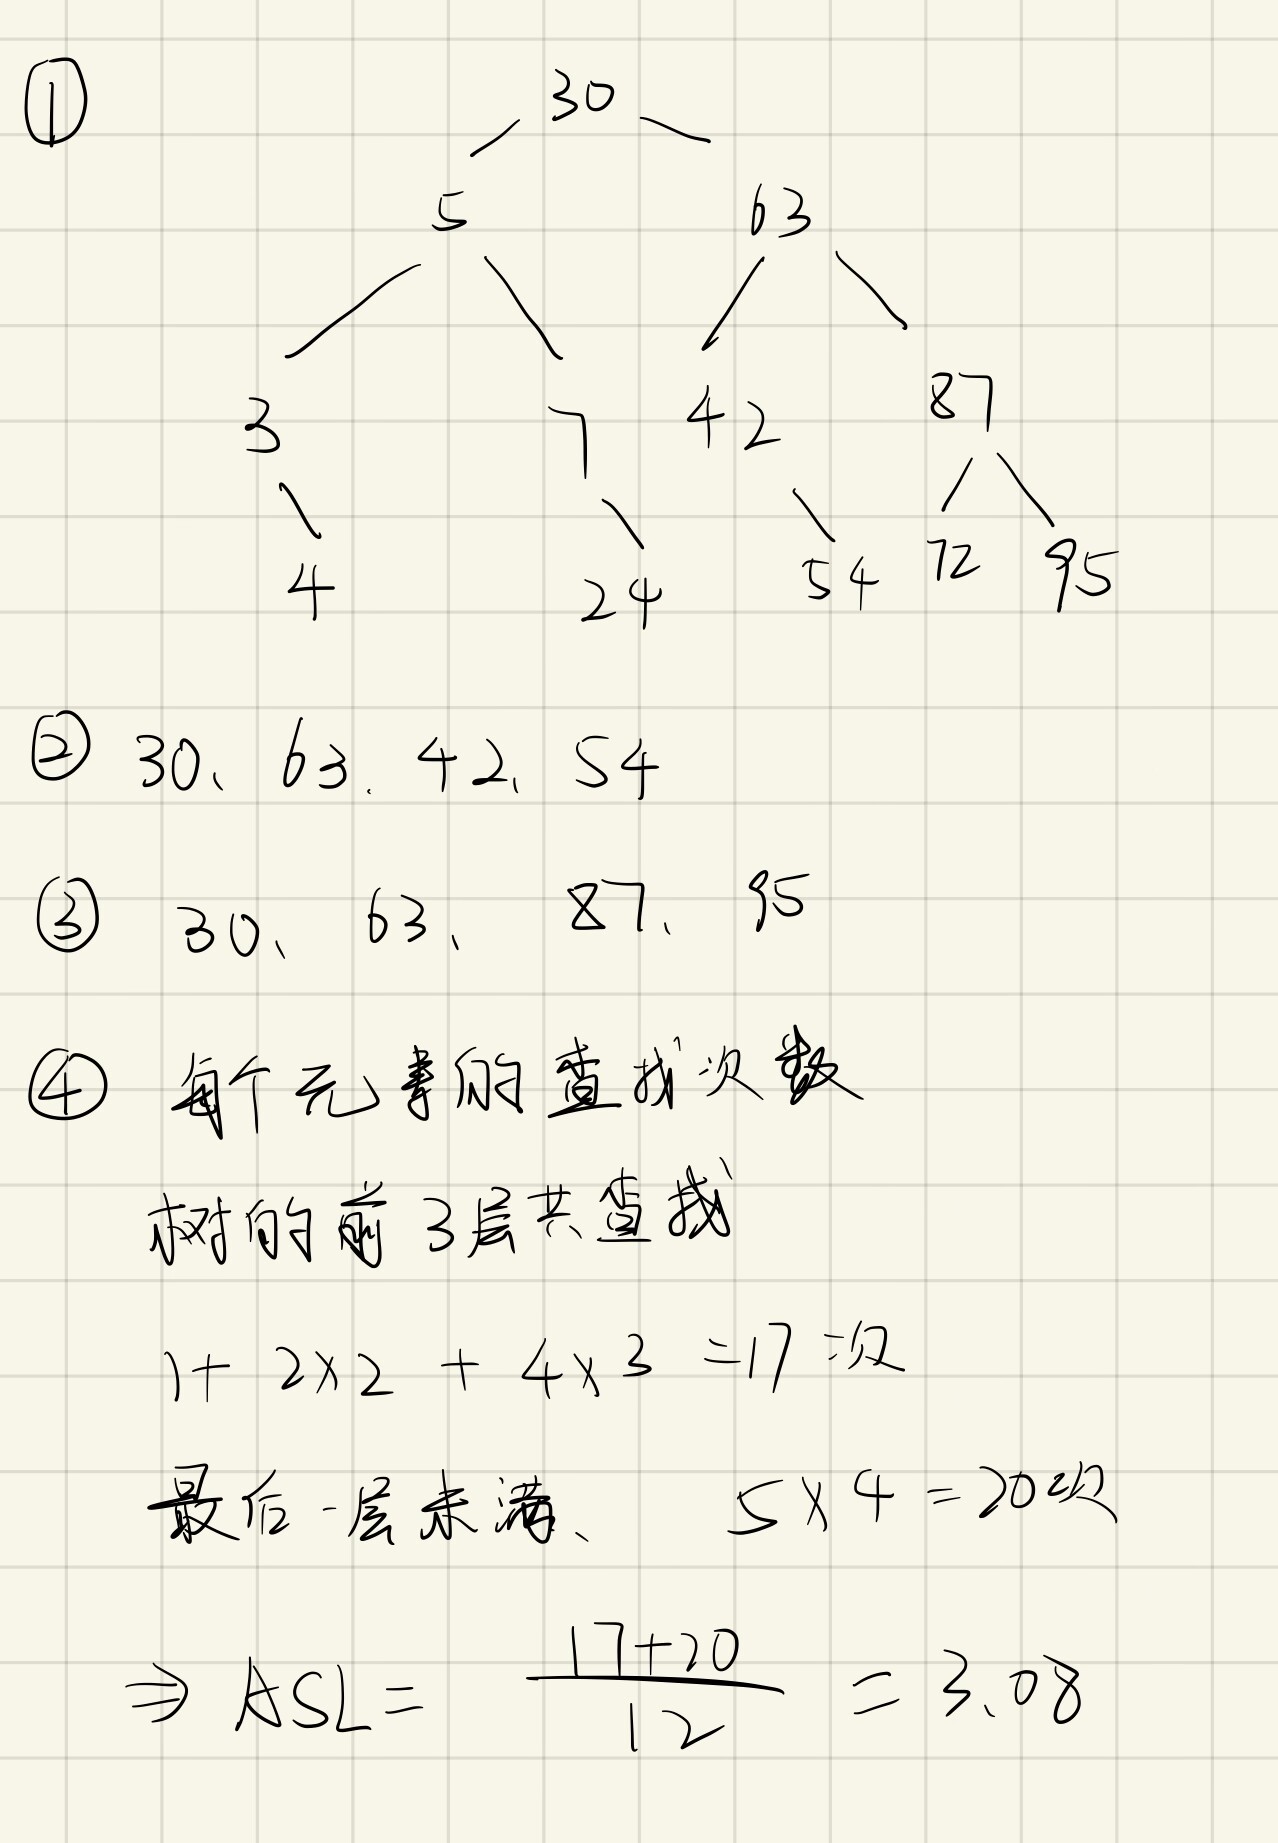 ① 30
5 63
3 7 42 87
4 24 54 72 95
② 30、63、42、54
③ 30、63、87、95
④ 每个元素的查找次数
树的前3层共查找
1+ 2×2 + 4×3 =17次
最后一层未满、 5×4=20次
⇒ ASL= 17+20/12 = 3.08